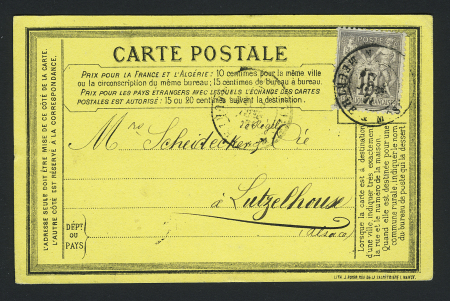 CARTE POSTALE
PRIX POUR LA FRANCE ET L'ALGÉRIE: 10 centimes pour la même ville
ou la circonscription du même bureau; 15 centimes de bureau à bureau.
PRIX POUR LES PAYS ÉTRANGERS AVEC LESQUELS L'ÉCHANGE DES CARTES
POSTALES EST AUTORISÉ: 15 ou 20 centimes suivant la destination.
L'ADRESSE SEULE DOIT ÊTRE MISE DE CE CÔTÉ DE LA CARTE.
L'AUTRE CÔTÉ EST RÉSERVÉ A LA CORRESPONDANCE.
Mrs Scheidecker & Cie
à Lutzelhouse
(Alsace)
DÉPT
OU
PAYS
Lorsque la carte est à destination
d'une ville, indiquer très exactement
la rue et le numéro de la maison.
Quand elle est destinée pour une
commune rurale, indiquer le nom
du bureau de poste qui la dessert.